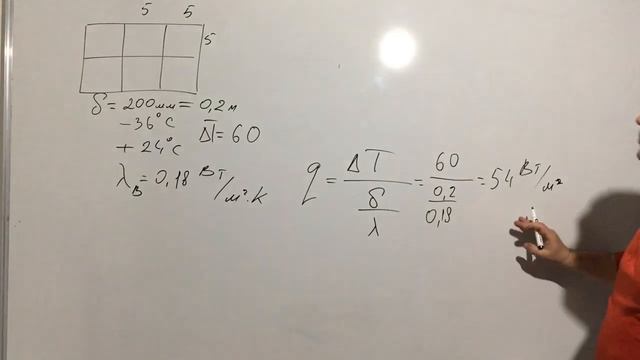 5 5
5
δ = 200мм = 0,2м
-36°C
+24°C
ΔT = 60
λв = 0,18 Вт/м².К
q = ΔT / (δ/λ) = 60 / (0,2/0,18) = 54 Вт/м²